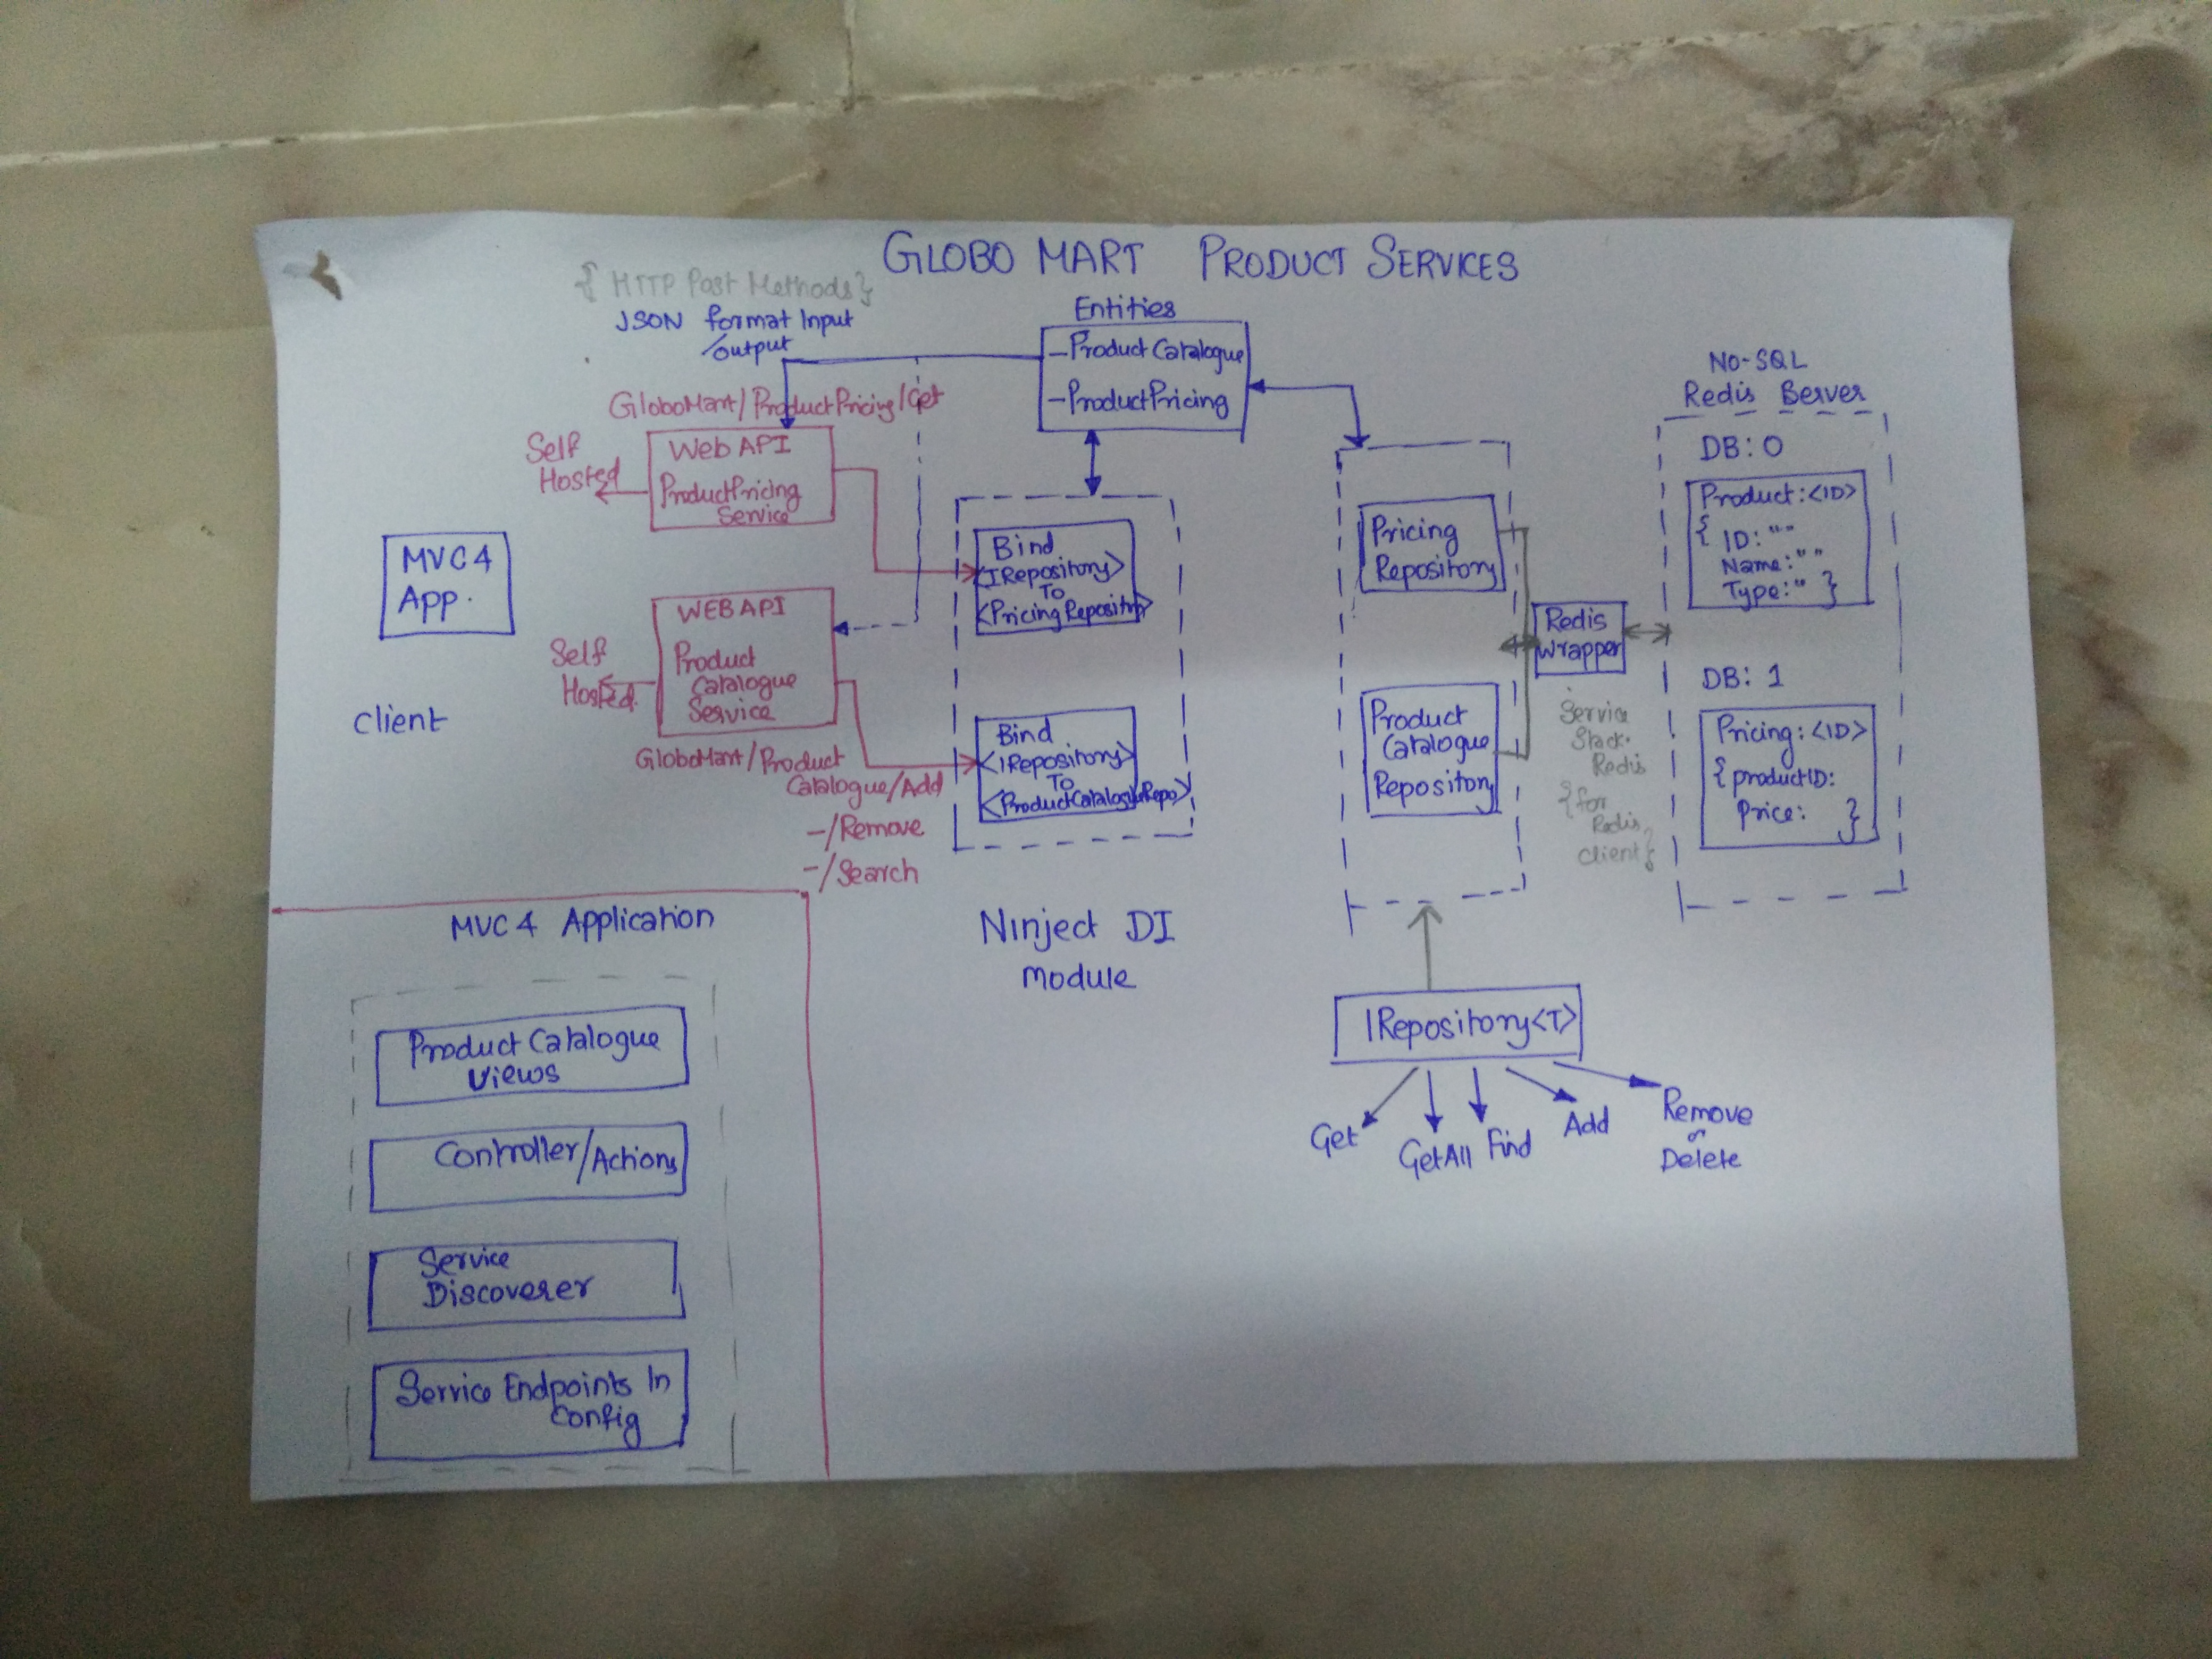 GLOBO MART PRODUCT SERVICES
{ HTTP Post Methods}
JSON format Input
/output
Entities
-Product Catalogue
-ProductPricing
GloboMart/ProductPricing/Get
Self
Hosted
Web API
ProductPricing
Service
MVC 4
App.
Client
Self
Hosted.
WEB API
Product
Catalogue
Service
GloboMart/Product
Catalogue/Add
-/Remove
-/Search
Bind
<IRepository>
To
<PricingRepository>
Bind
<IRepository>
To
<ProductCatalogueRepo>
Ninject DI
Module
Pricing
Repository
Product
Catalogue
Repository
Redis
Wrapper
Service
Stack.
Redis
{for
Redis
client}
No-SQL
Redis Berver
DB: 0
Product:<ID>
{ ID: ""
Name:""
Type:" }
DB: 1
Pricing:<ID>
{ productID:
Price: }
IRepository<T>
Get
GetAll
Find
Add
Remove
or
Delete
MVC 4 Application
Product Catalogue
Views
Controller/Actions
Service
Discoverer
Service Endpoints In
Config